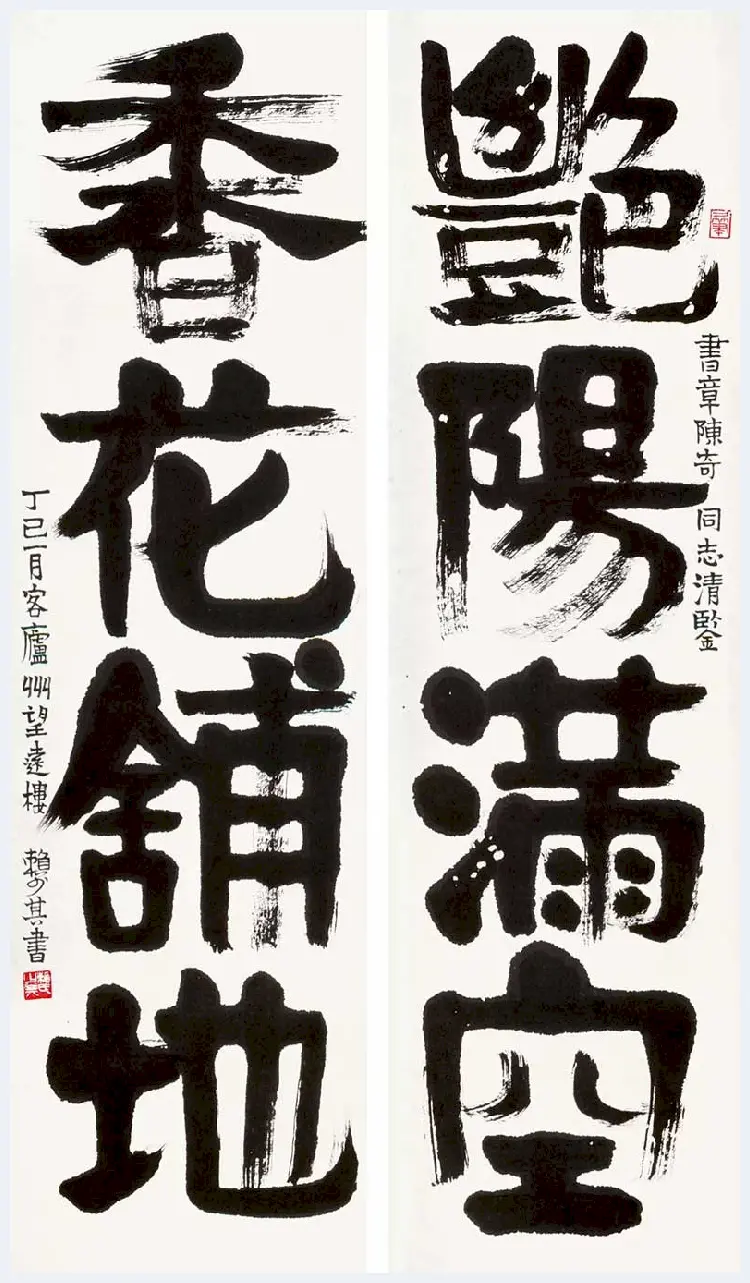 艷陽滿空
書章陳奇 同志清鑒
香花舖地
丁巳一月客廬州望遠樓 賴少其書